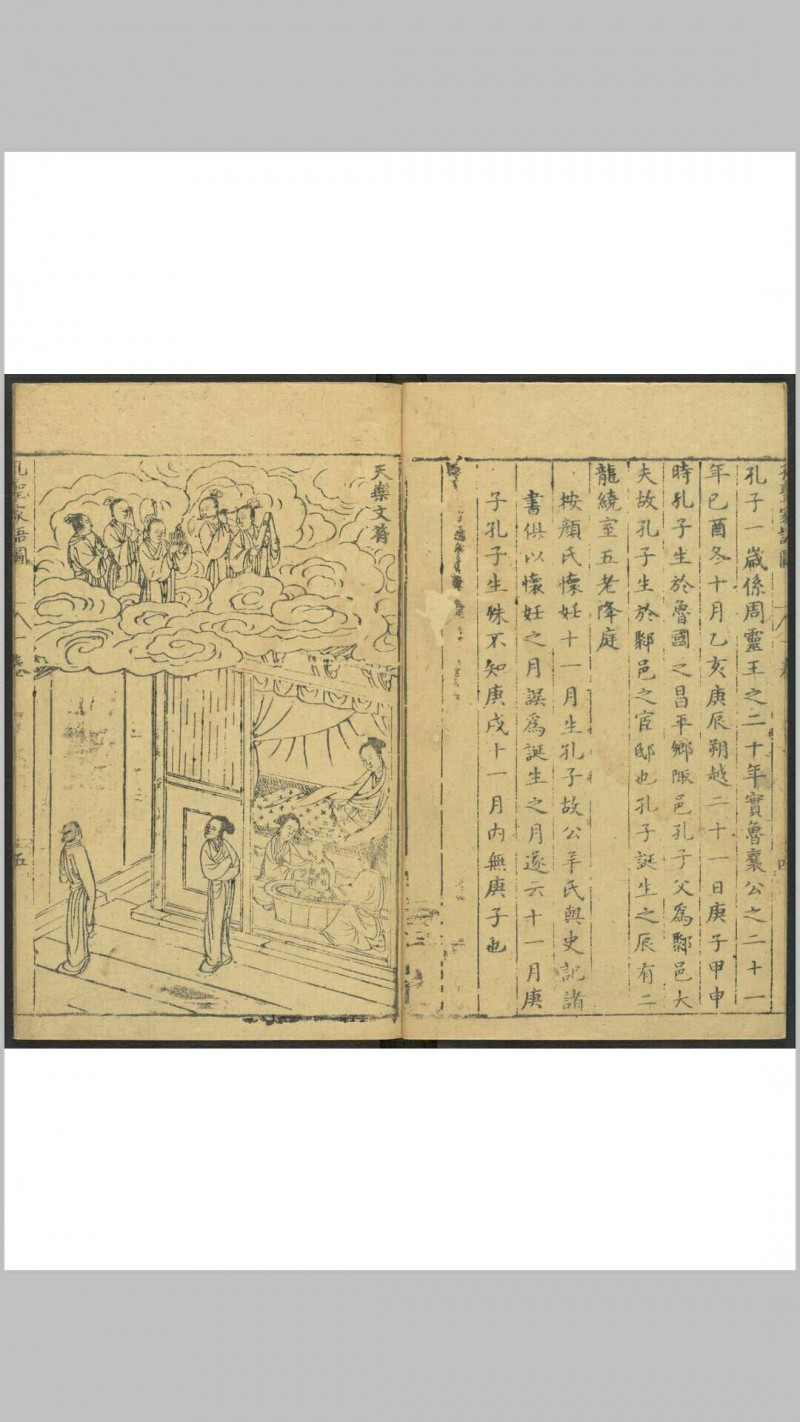 孔子一歲係周靈王之二十年實魯襄公之二十一
年己酉冬十月乙亥庚辰朔越二十一日庚子甲申
時孔子生於魯國之昌平鄉陬邑孔子父為鄹邑大
夫故孔子生於鄹邑之官邸也孔子誕生之辰有二
龍繞室五老降庭
按顏氏懷妊十一月生孔子故公羊氏與史記諸
書俱以懷妊之月誤為誕生之月遂云十一月庚
子孔子生殊不知庚戌十一月内無庚子也
天樂文符
孔聖家語圖
五